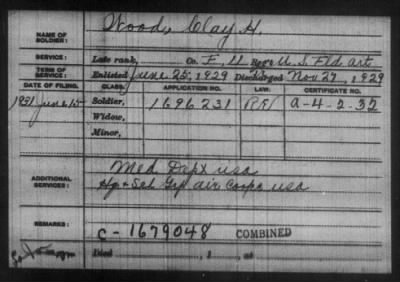 NAME OF SOLDIER: Wood, Clay H.
SERVICE: Late rank, Co. F, 11 Reg't U.S. Fld art
TERM OF SERVICE: Enlisted June 25, 1929 Discharged Nov 27, 1929
DATE OF FILING. CLASS. APPLICATION NO. LAW. CERTIFICATE NO.
1931 June 15 Soldier, 1696231 A-4-2-32
Widow,
Minor,
ADDITIONAL SERVICES: Med Dept usa
Hq & Sch Grp air Corps usa
REMARKS: C-1679048 COMBINED
Died , 1 , at